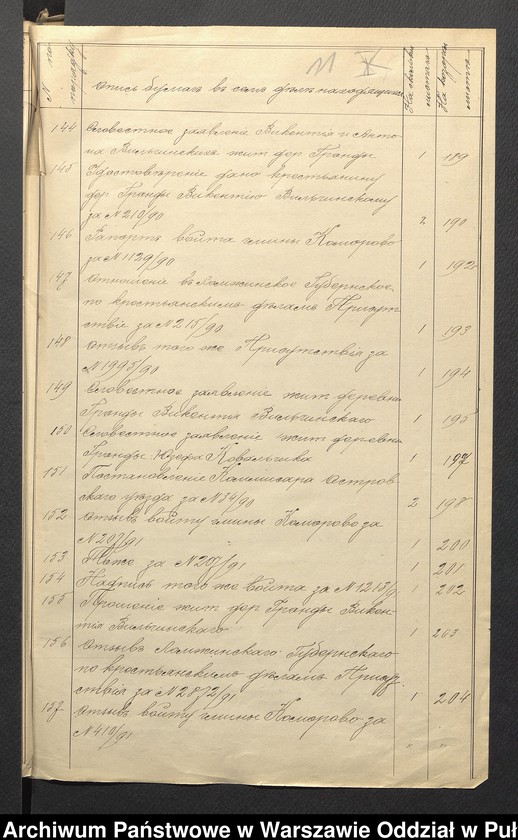 11 X
№ по порядку
Опись бумагъ въ семъ дѣлѣ находящихся
На сколькихъ листахъ
На которомъ листѣ
144 Словестное заявленіе Викентія и Анто-
на Вильгинскихъ жит дер Гранды 1 189
145 Удостовѣреніе дано крестьянину
дер Гранды Викентію Вильгинскому
за № 210/90 2 190
146 Рапортъ войта гмины Коморово
за № 1129/90 1 192
147 Отношеніе въ Ломжинское Губернское
по крестьянскимъ дѣламъ Присут
ствіе за № 215/90 1 193
148 Отзывъ того же Присутствія за
№ 1995/90 1 194
149 Словестное заявленіе жит деревни
Гранды Викентія Вильгинскаго 1 195
150 Словестное заявленіе жит деревни
Гранды Юзефа Ковальчика 1 197
151 Постановленіе Коммисара Остров-
скаго уѣзда за № 34/90 2 198
152 Отзывъ войту гмины Коморово за
№ 207/91 1 200
153 Тоже за № 207/91 1 201
154 Надпись того же войта за № 1213/91 1 202
155 Прошеніе жит дер Гранды Викен-
тія Вильгинскаго 1 203
156 Отзывъ Ломжинскаго Губернскаго
по крестьянскимъ дѣламъ Присут-
ствія за № 2872/91 1 204
157 Отзывъ войту гмины Коморово за
№ 410/91 " "
Archiwum Państwowe w Warszawie Oddział w Puł